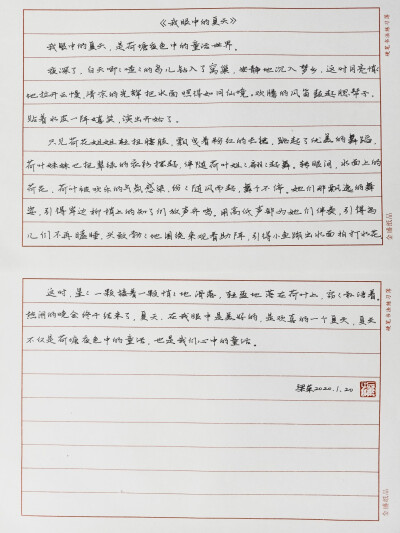 《我眼中的夏天》
我眼中的夏天，是荷塘夜色中的童话世界。
夜深了，白天唧唧喳喳的鸟儿钻入了窝巢，安静地沉入梦乡，这时月亮悄悄
地拉开云幔，清凉的光辉把水面照得如同仙境。欢腾的风笛鼓起腮帮子，
贴着水皮一阵嬉笑，演出开始了。
只见荷花姐姐轻扭腰肢，飘曳着粉红的长裙，跳起了优美的舞蹈，
荷叶妹妹也把翠绿的衣衫撑起，伴随荷叶姐姐翩翩起舞。转眼间，水面上的
荷花，荷叶被欢乐的气氛感染，纷纷随风而起，舞个不停。她们那飘逸的舞
姿，引得岸边柳梢上的知了们放声开唱。用高低声部为她们伴奏，引得鸟
儿们不再瞌睡，兴致勃勃地围绕来观看助阵，引得小鱼跳出水面拍打水花。
这时，星星一颗接着一颗悄悄地滑落，轻盈地落在荷叶上，窃窃私语着。
热闹的晚会终于结束了，夏天，在我眼中是美好的，最欢喜的一个夏天，夏天
不仅是荷塘夜色中的童话，也是我们心中的童话。
2020.1.20
硬笔书法练习簿
金博纸品
硬笔书法练习簿
金博纸品